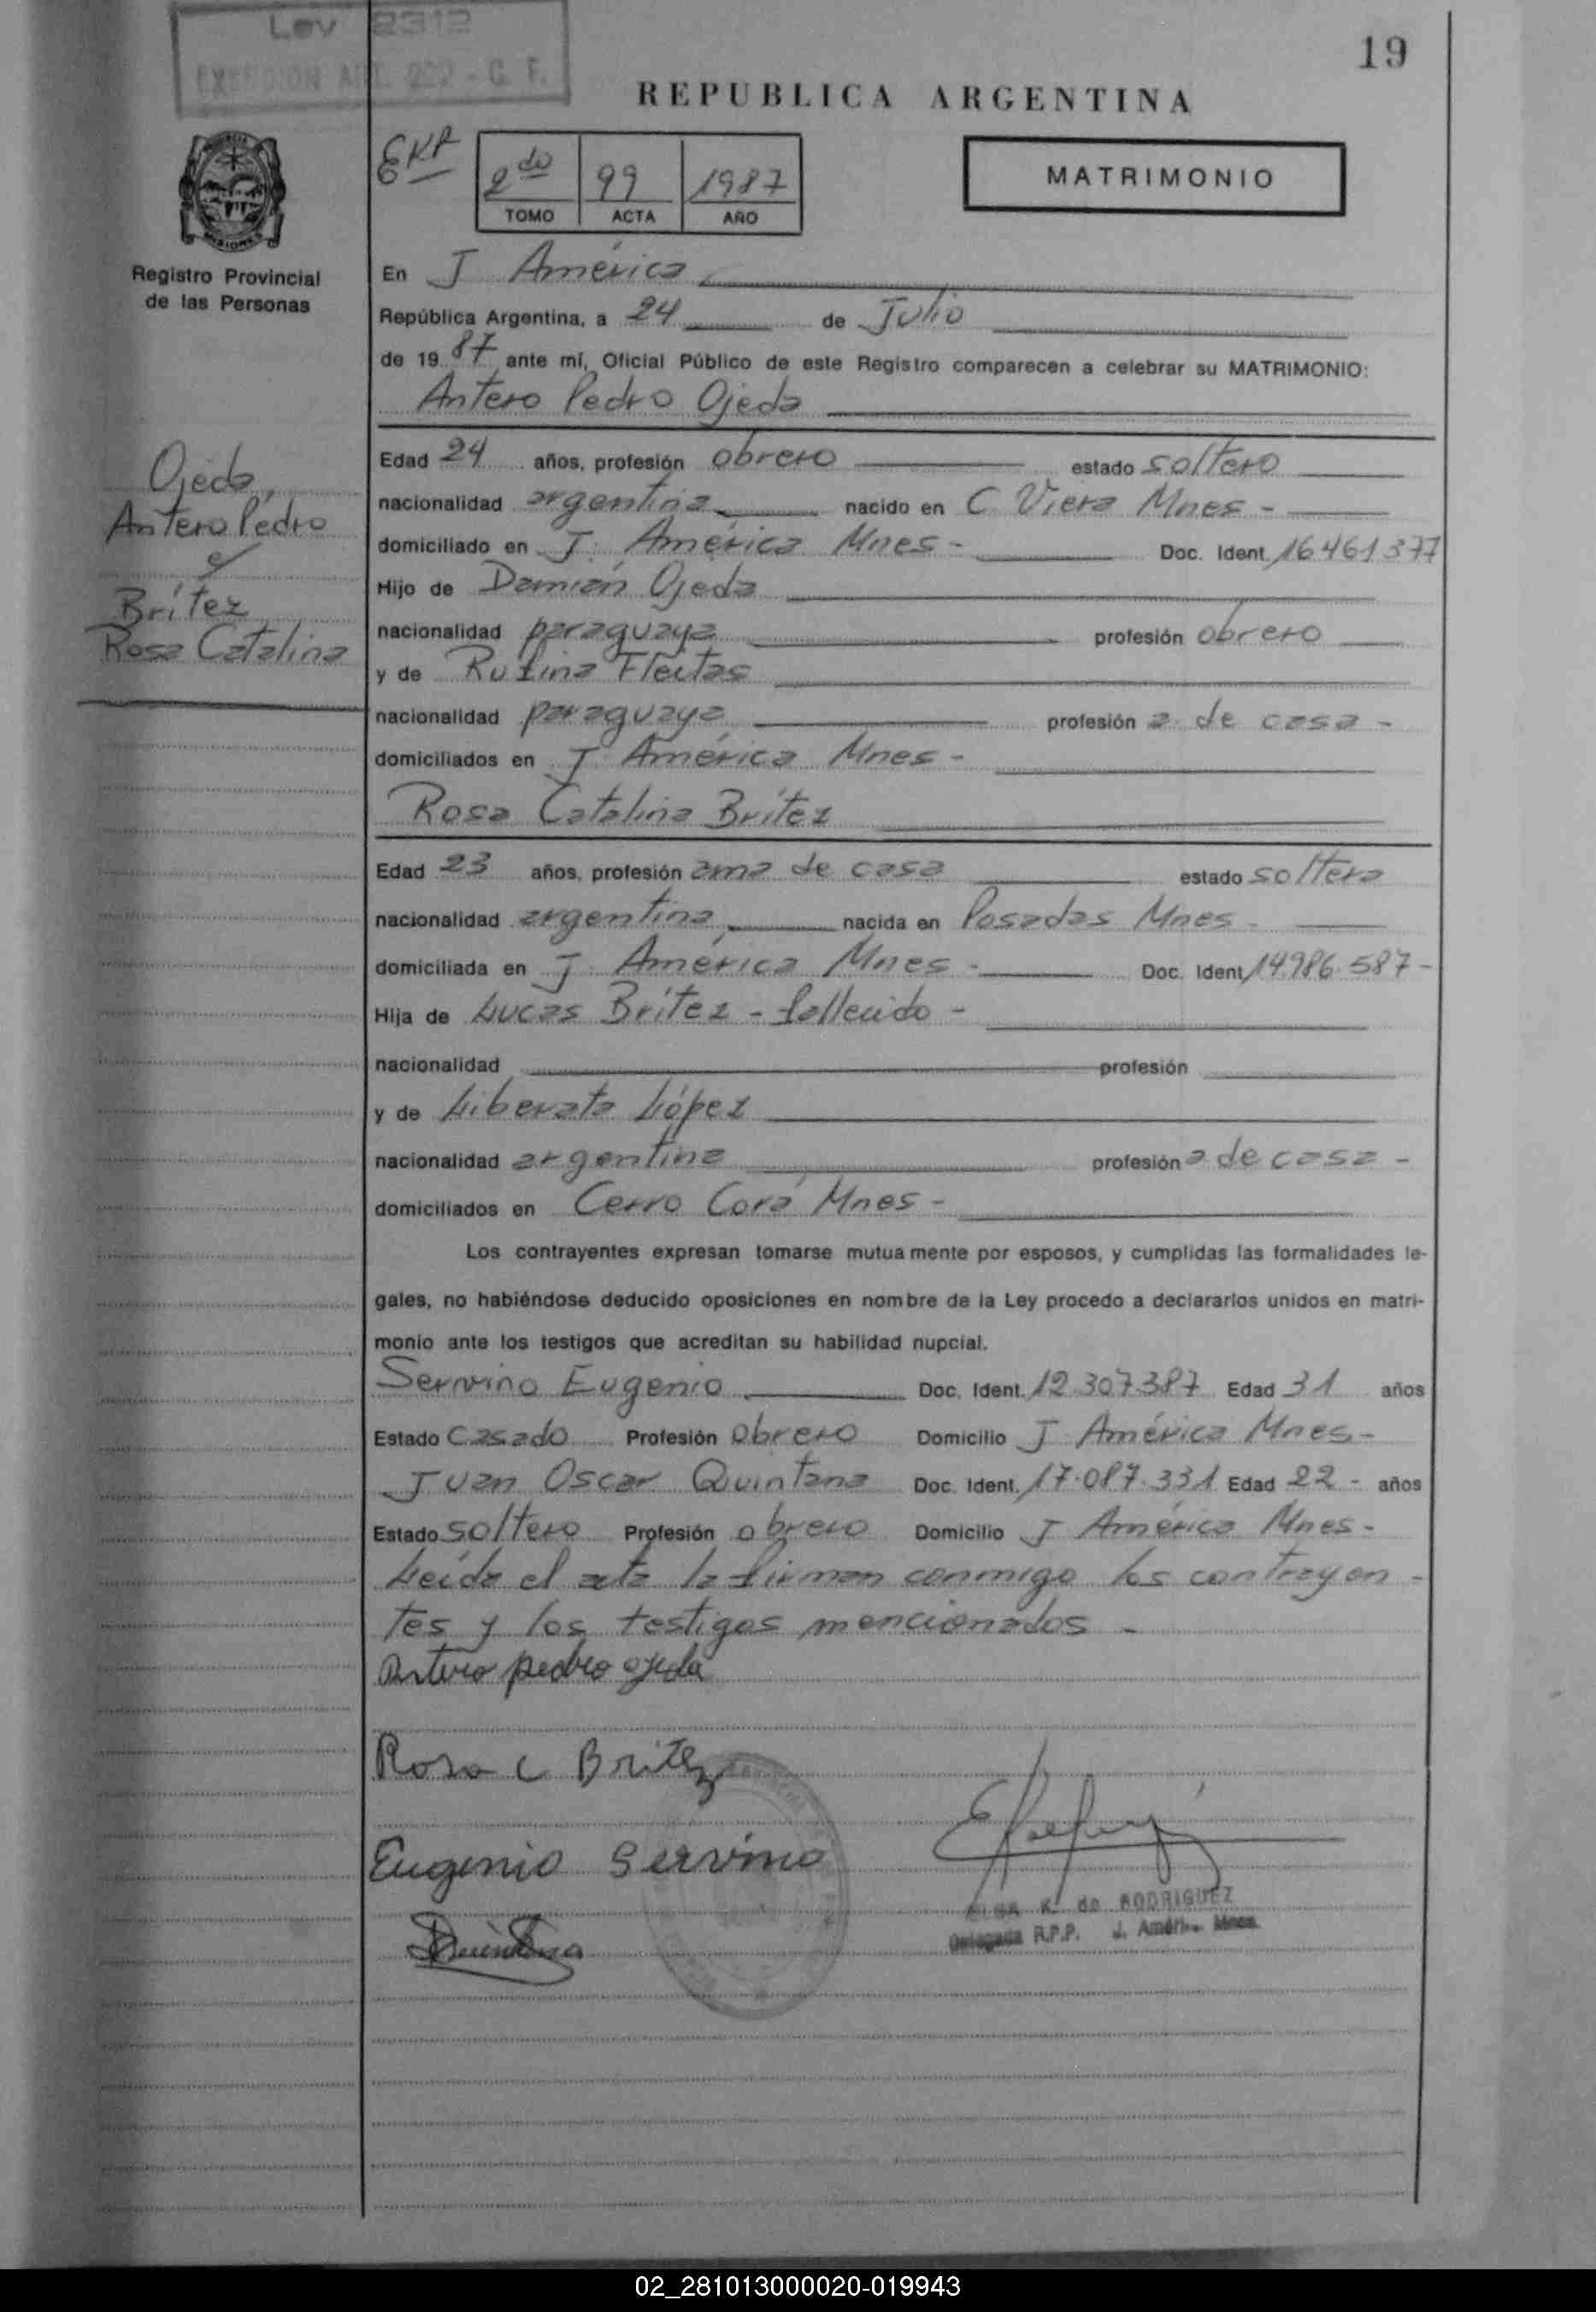 Ley 2312
EXENCION ART. 292 - C. F.
19
REPUBLICA ARGENTINA
EKR
2do 99 1987
TOMO ACTA AÑO
MATRIMONIO
MISIONES
Registro Provincial
de las Personas
En J América
República Argentina, a 24 de Julio
de 19 87 ante mí, Oficial Público de este Registro comparecen a celebrar su MATRIMONIO:
Antero Pedro Ojeda
Ojeda,
Antero Pedro
y
Brítez
Rosa Catalina
Edad 24 años, profesión obrero estado soltero
nacionalidad argentina nacido en C. Viera Mnes -
domiciliado en J. América Mnes - Doc. Ident. 16.461.377
Hijo de Damián Ojeda
nacionalidad paraguaya profesión obrero
y de Rufina Fleitas
nacionalidad paraguaya profesión a. de casa -
domiciliados en J América Mnes -
Rosa Catalina Brítez
Edad 23 años, profesión ama de casa estado soltera
nacionalidad argentina nacida en Posadas Mnes -
domiciliada en J. América Mnes - Doc. Ident. 14.986.587 -
Hija de Lucas Brítez - fallecido -
nacionalidad profesión
y de Liberata López
nacionalidad argentina profesión a. de casa -
domiciliados en Cerro Corá Mnes -
Los contrayentes expresan tomarse mutua mente por esposos, y cumplidas las formalidades le-
gales, no habiéndose deducido oposiciones en nombre de la Ley procedo a declararlos unidos en matri-
monio ante los testigos que acreditan su habilidad nupcial.
Servino Eugenio Doc. Ident. 12.307.387 Edad 31 años
Estado casado Profesión obrero Domicilio J América Mnes -
Juan Oscar Quintana Doc. Ident. 17.087.331 Edad 22 - años
Estado soltero Profesión obrero Domicilio J América Mnes -
Leída el acta la firman conmigo los contrayen -
tes y los testigos mencionados -
Antero pedro ojeda
Rosa C Britez
Eugenio Servino
Quintana
ELSA K. de RODRIGUEZ
Delegada R.P.P. J. América Mnes.
02_281013000020-019943